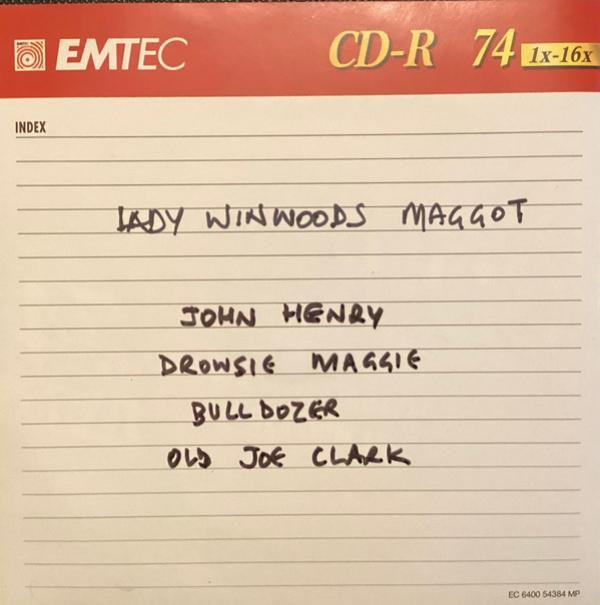 EMTEC CD-R 74 1x-16x
INDEX
LADY WINWOODS MAGGOT
JOHN HENRY
DROWSIE MAGGIE
BULLDOZER
OLD JOE CLARK
EC 6400 54384 MP